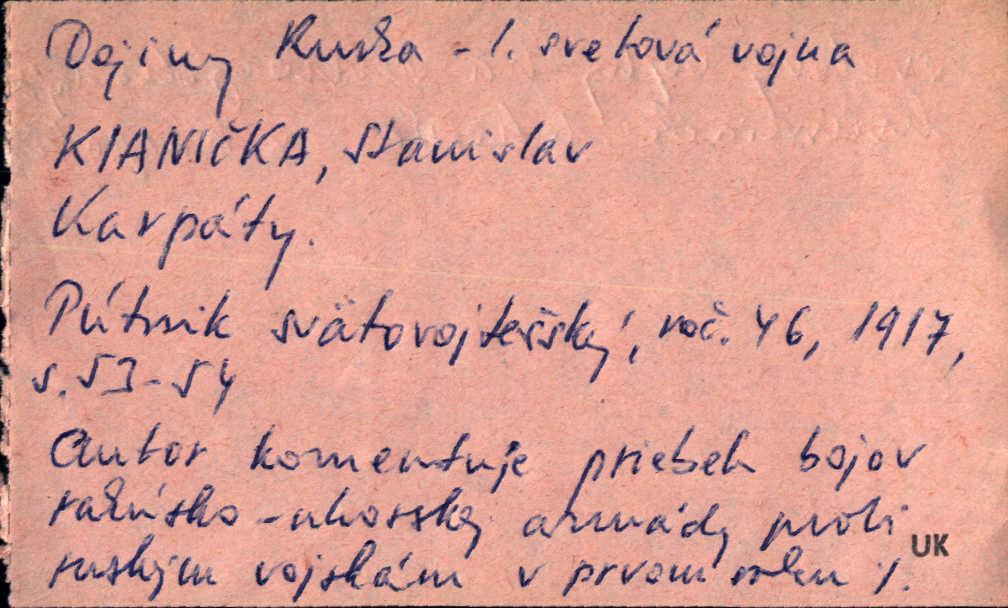 Dejiny Ruska - 1. svetová vojna
KIANIČKA, Stanislav
Karpáty.
Pútnik svätovojtešský, roč. 46, 1917,
s. 53-54
Autor komentuje priebeh bojov
rakúsko-uhorskej armády proti
ruským vojskám v prvom roku 1.
UK